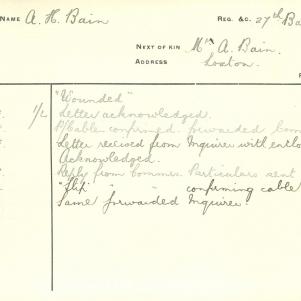 NAME A. H. Bain REG. &C. 27th Ba
NEXT OF KIN Mrs A. Bain.
ADDRESS Loxton.
"Wounded"
1/2 Letter acknowledged.
Cable confirmed. forwarded
Letter received from Inquirer with enclo
Acknowledged.
Reply from Commsn. Particulars sent
" " confirming cable
Same forwarded Inquirer.